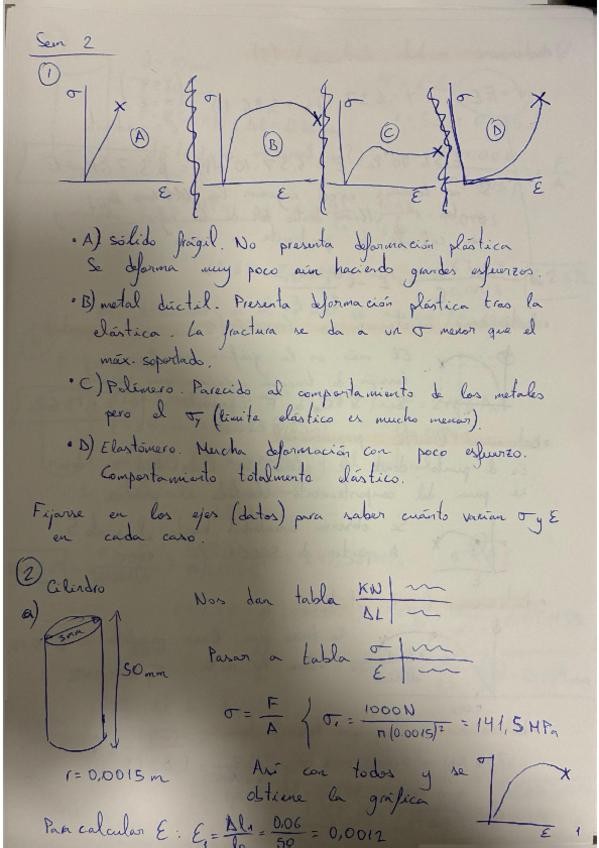 Sem 2
1
σ A ε σ B ε σ C ε σ D ε
• A) sólido frágil. No presenta deformación plástica
Se deforma muy poco aún haciendo grandes esfuerzos.
• B) metal dúctil. Presenta deformación plástica tras la
elástica. La fractura se da a un σ menor que el
máx. soportado.
• C) Polímero. Parecido al comportamiento de los metales
pero el σy (límite elástico es mucho menor).
• D) Elastómero. Mucha deformación con poco esfuerzo.
Comportamiento totalmente elástico.
Fijarse en los ejes (datos) para saber cuánto varían σ y ε
en cada caso.
2 Cilindro
a)
3mm
50mm
r = 0,0015 m
Nos dan tabla KN
ΔL
Pasar a tabla σ
ε
σ = F/A { σ₁ = 1000N / π(0.0015)² = 141,5 MPa
Así con todos y se
obtiene la gráfica
σ ε
Para calcular ε : ε₁ = Δl₁/l₀ = 0.06/50 = 0,0012
1